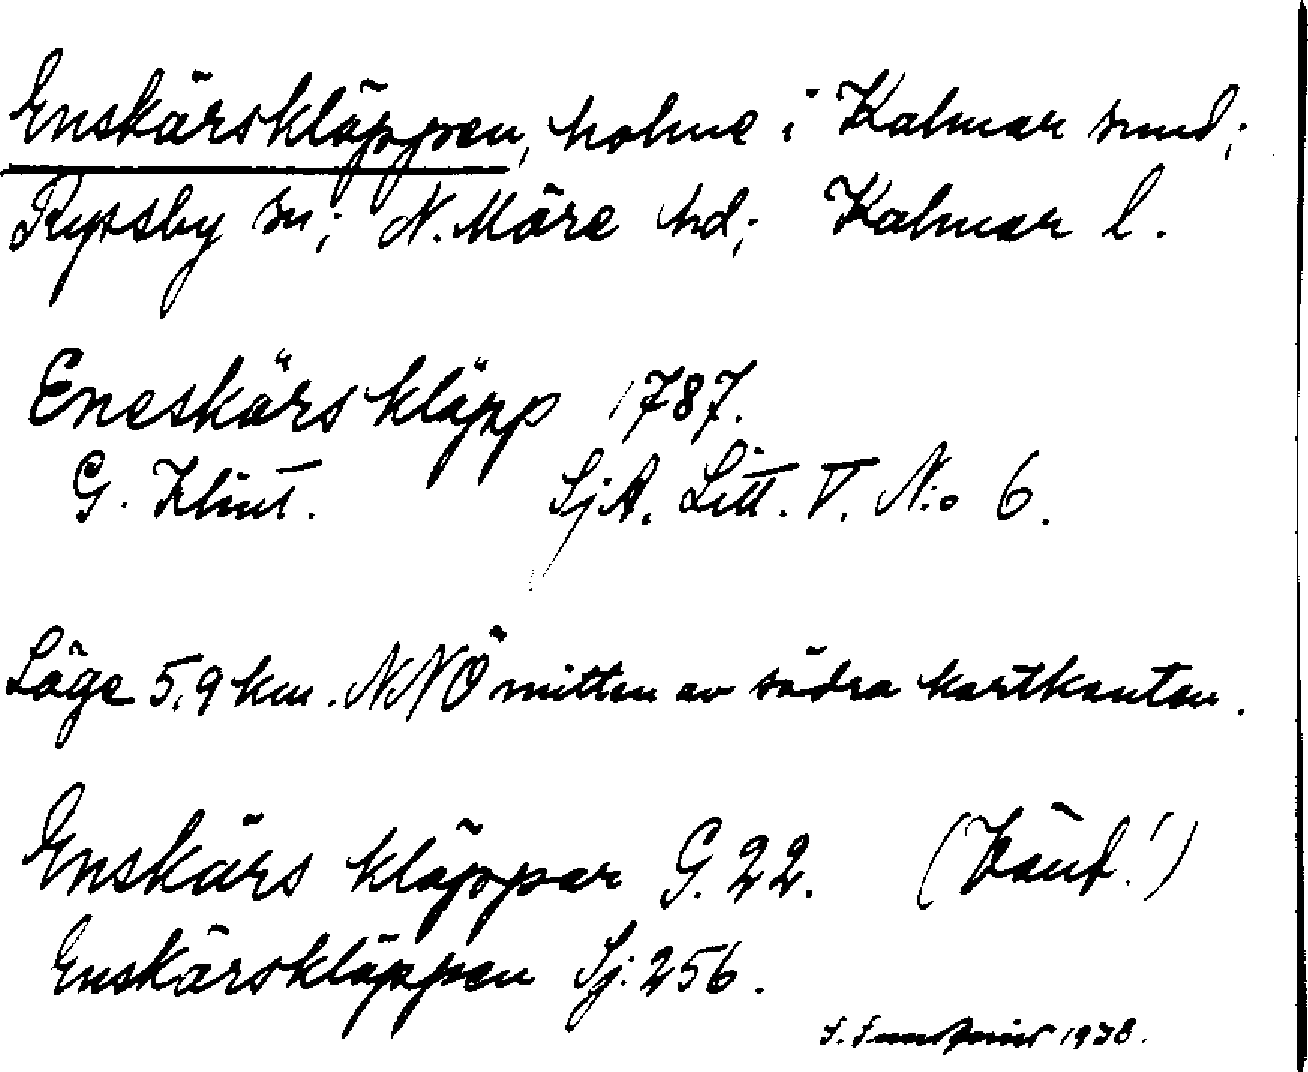 Enskärskläppen, holme i Kalmar sund;
Ryssby sn; N. Möre hd; Kalmar l.
Eneskärs kläpp 1787.
G. Klint. SjA. Litt. V. N:o 6.
Läge 5,9 km. NNÖ mitten av södra kartkanten.
Enskärs kläppar G. 22. (Jämf.!)
Enskärskläppen Sj. 256.
1938.